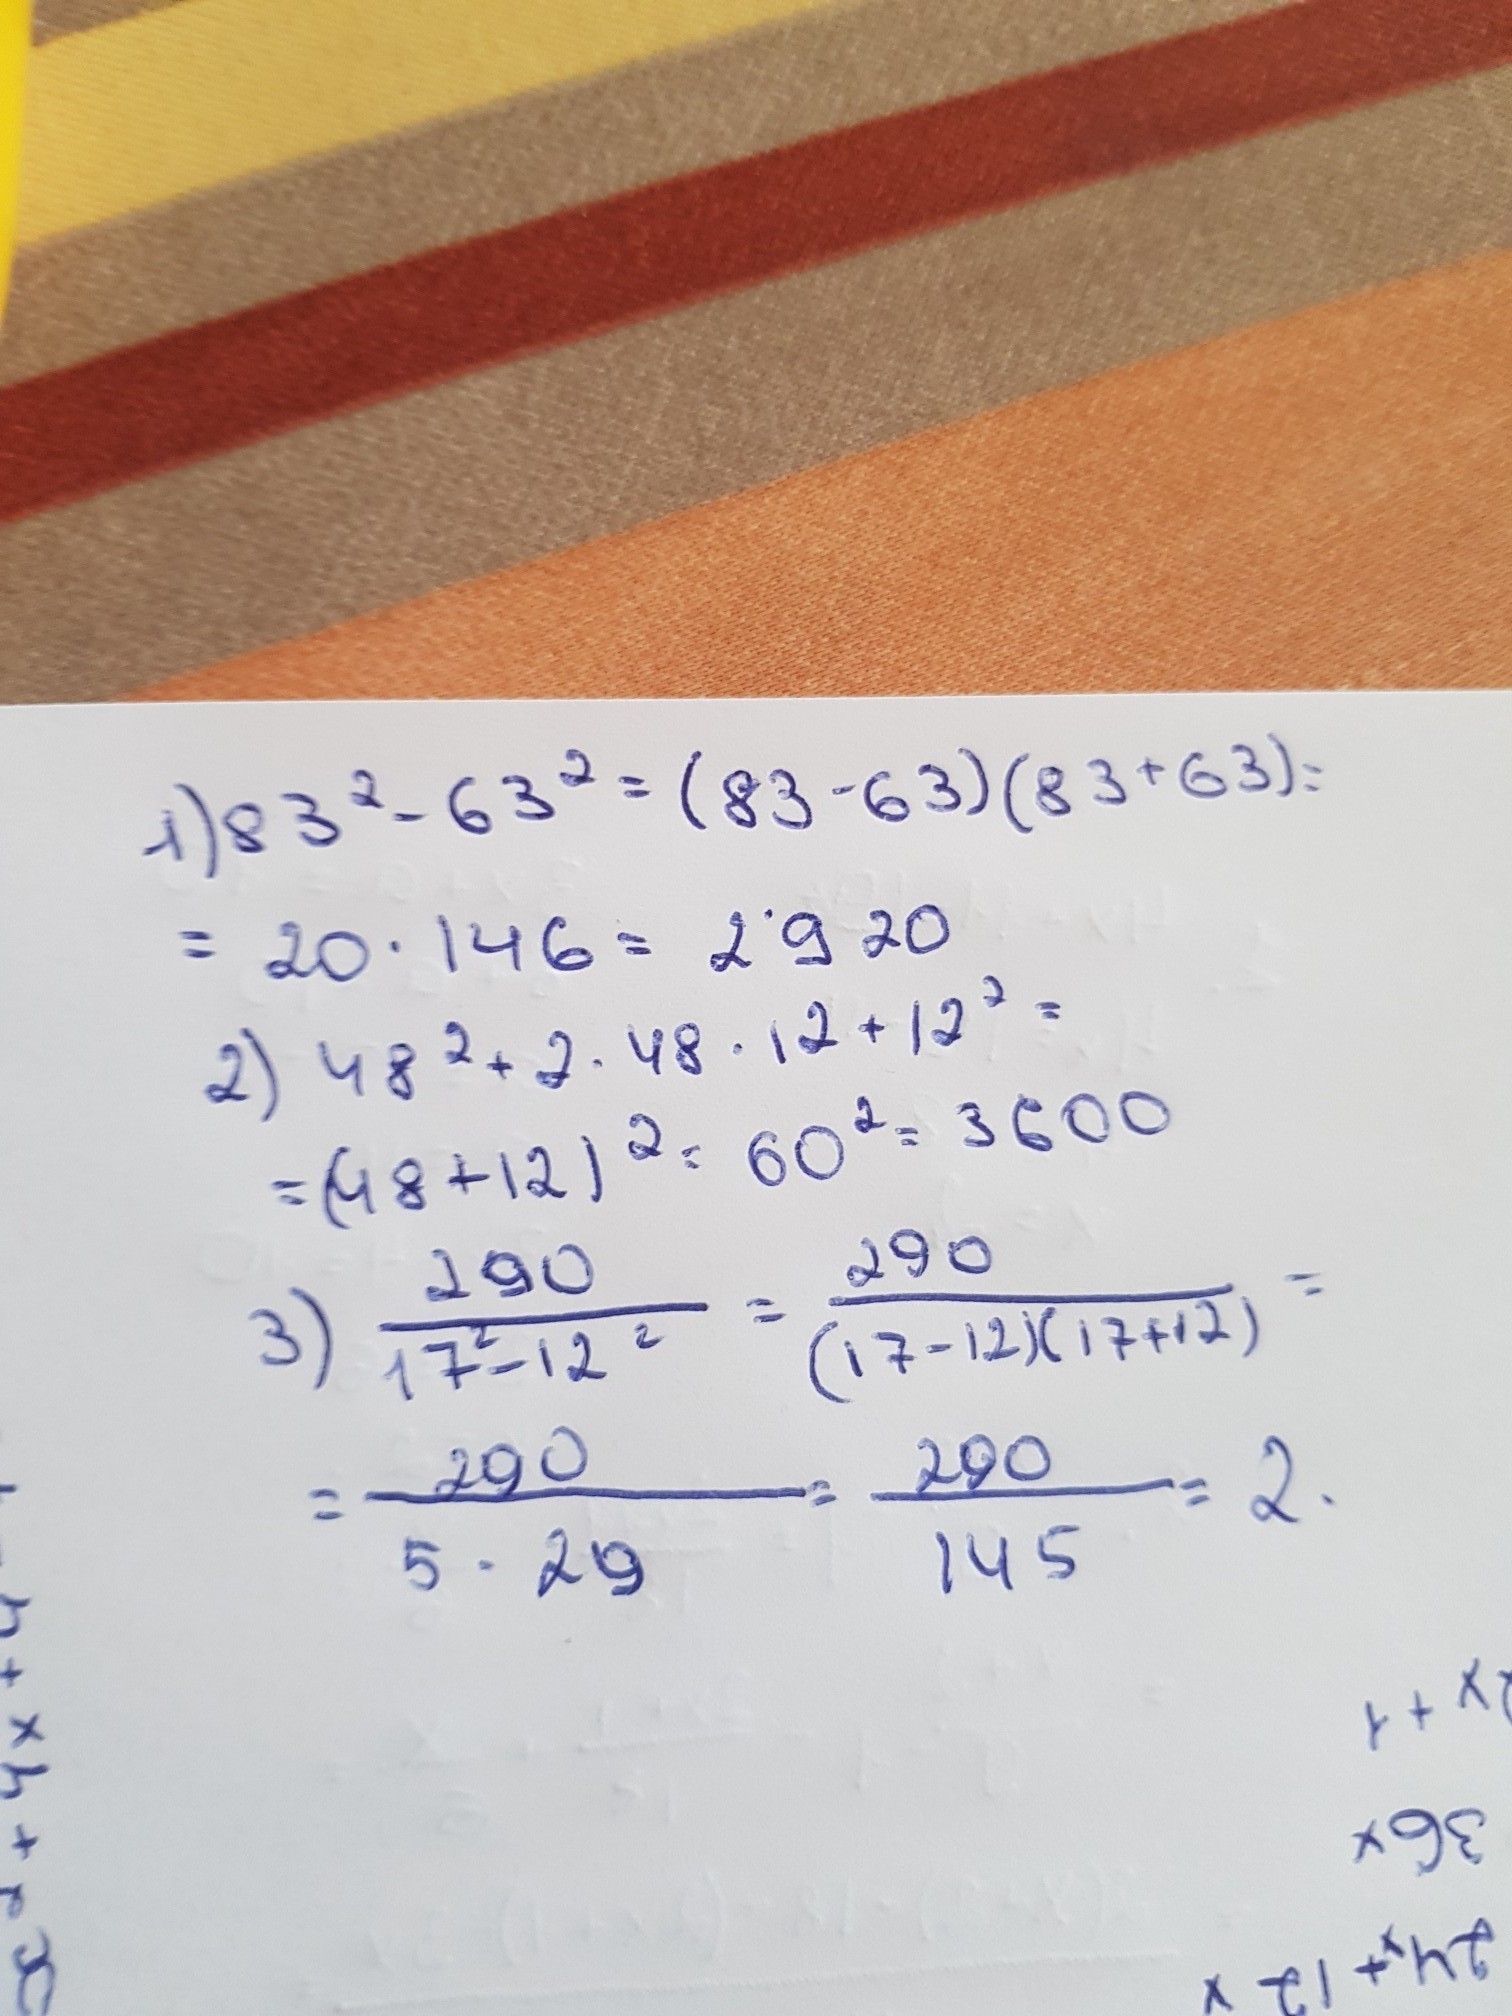 1) 83² - 63² = (83 - 63)(83 + 63) =
= 20 · 146 = 2920
2) 48² + 2 · 48 · 12 + 12² =
= (48 + 12)² = 60² = 3600
3) 290/(17² - 12²) = 290/((17 - 12)(17 + 12)) =
= 290/(5 · 29) = 290/145 = 2.
2x + 1
36x
24x + 12x